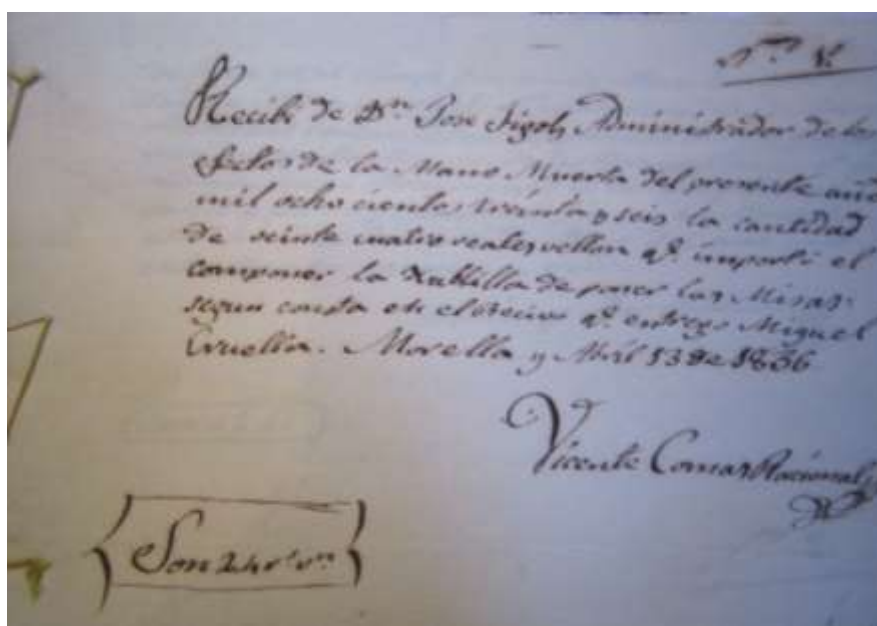 Recibi de Dn. Jose Sigols Administrador de los
efectos de la Mano Muerta del presente año
mil ocho cientos treinta y seis la cantidad
de veinte cuatro reales vellon qe. importó el
componer la tablilla de poner las Misas
segun consta en el recivo qe. entrego Miguel
Cruella. Morella y Abril 13 de 1836
Vicente Comas Racional
Son 24 rs. vn.